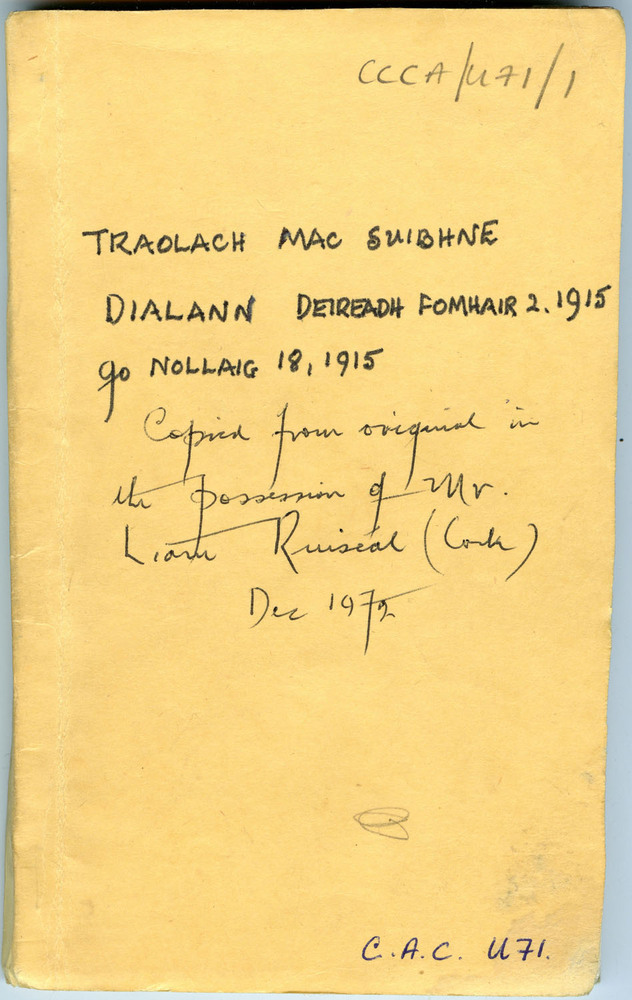 CCCA/U71/1
TRAOLACH MAC SUIBHNE
DIALANN DEIREADH FOMHAIR 2. 1915
go NOLLAIG 18, 1915
Copied from original in
the possession of Mr.
Liam Ruiséal (Cork)
Dec 1972
C.A.C. U71.